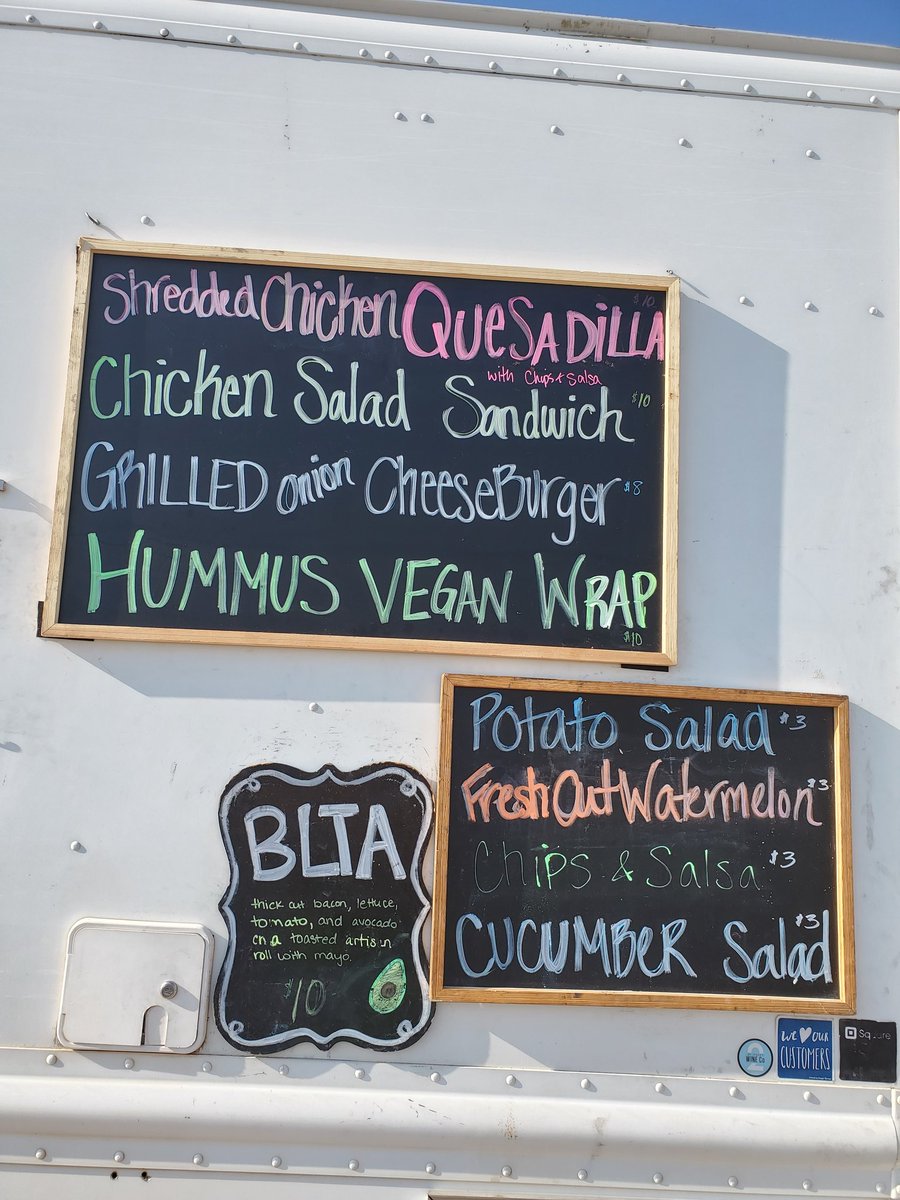 Shredded Chicken QUeSADiLLA $10
with Chips & Salsa
Chicken Salad Sandwich $10
GRILLED onion CheeseBurger $8
HUMMUS VEGAN WRAP
$10
Potato Salad $3
Fresh Cut Watermelon $3
Chips & Salsa $3
CUCUMBeR Salad $3
BLTA
thick cut bacon, lettuce,
tomato, and avocado
on a toasted artisan
roll with mayo.
$10
WINE Co
We our
CUSTOMERS
Square